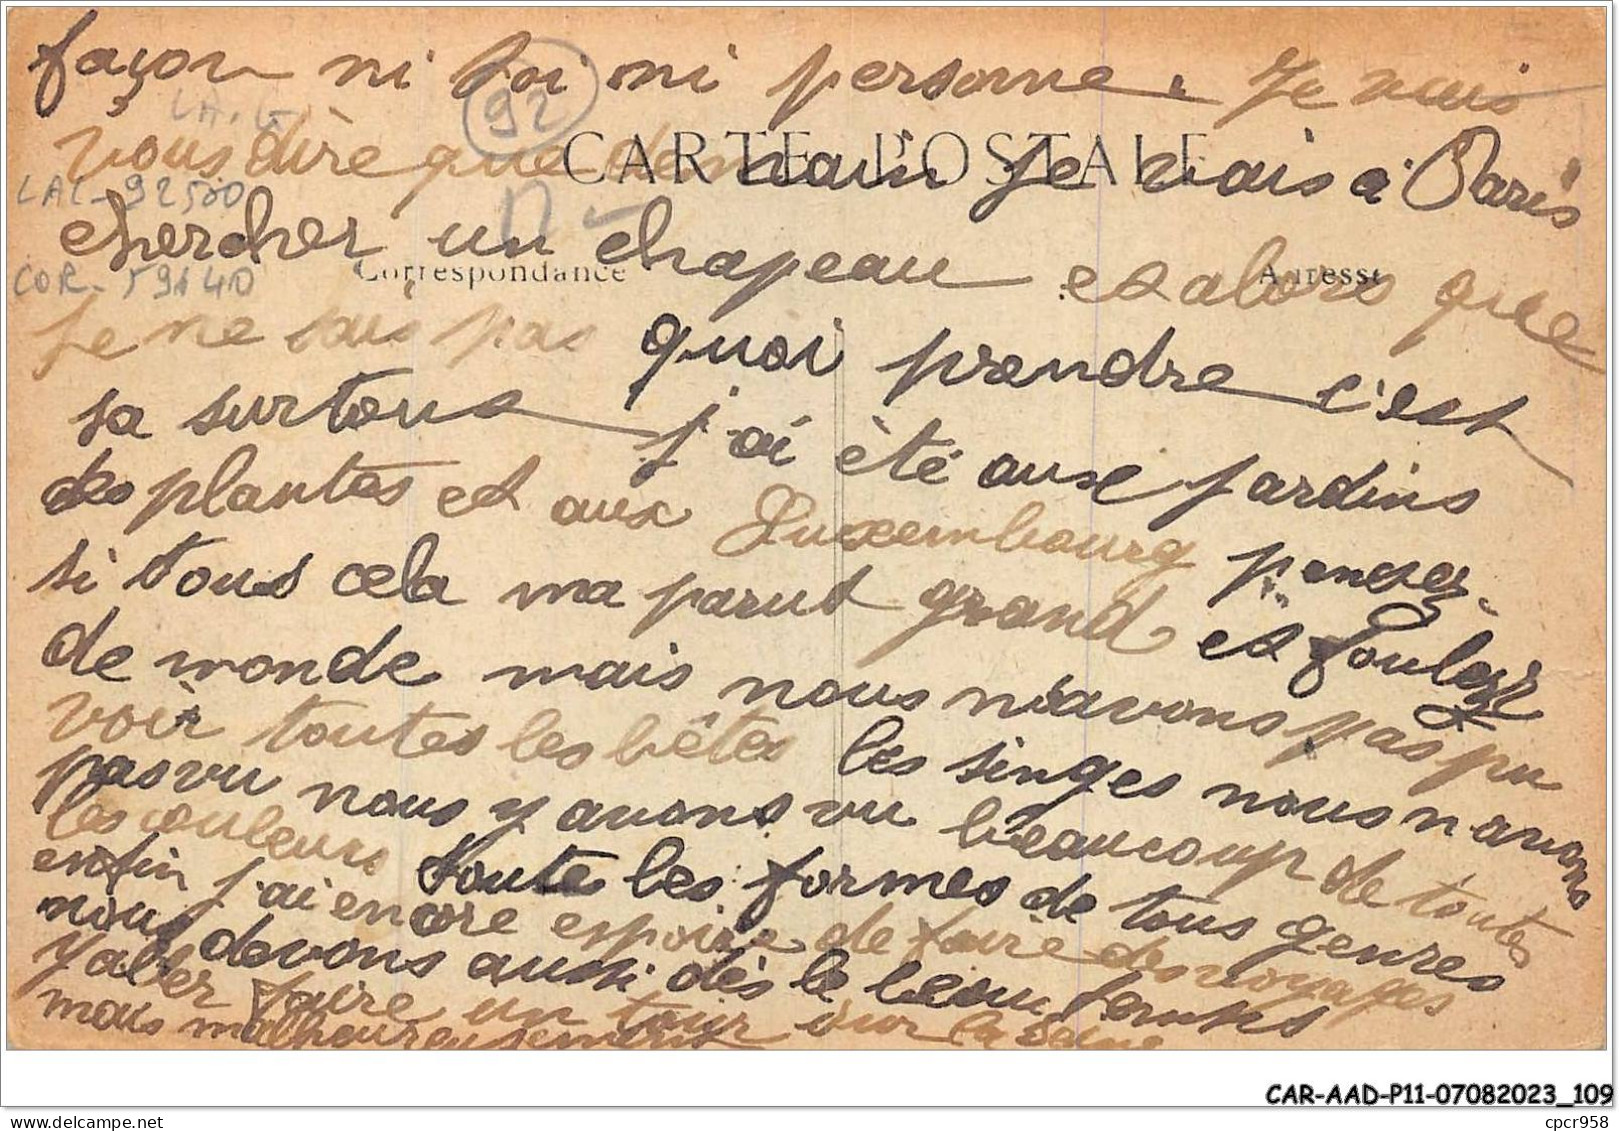 façon ni toi ni personne. Je vais
92
LA.G
vous dire que demain je vais à Paris
CARTE POSTALE
LAC-92500
chercher un chapeau et alors que
Correspondance
Adresse
COR-59140
je ne sais pas quoi prendre c'est
sa surtous j'ai èté aux jardins
des plantes et aux Luxembourg pensez
si tous cela ma parut grand et foulez
de monde mais nous n'avons pas pu
voir toutes les bêtes les singes nous n'avons
pas vu nous y avons vu beaucoup de toutes
les couleurs toute les formes de tous genres
enfin j'ai encore espoire de faire des voyages
nous devons aussi dès le beau temps
y aler faire un tour sur la Seine
mais malheureusement
CAR-AAD-P11-07082023_109
cpcr958